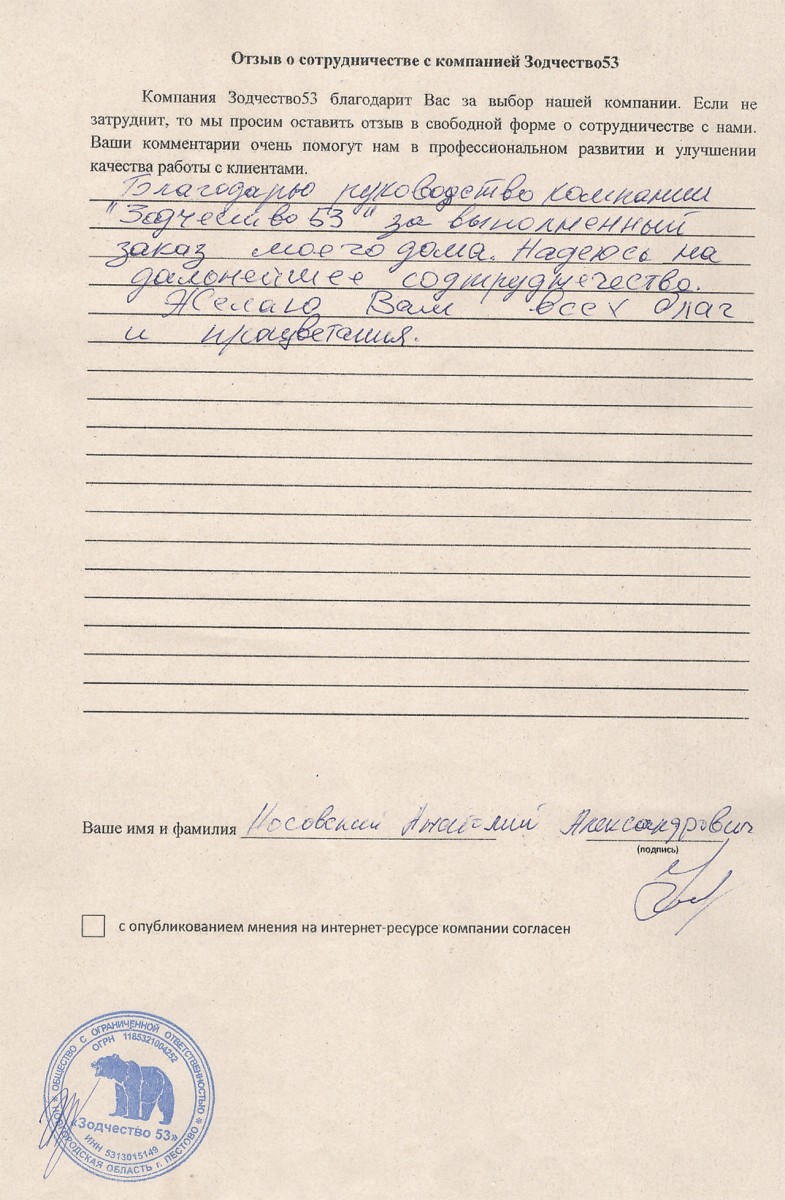 Отзыв о сотрудничестве с компанией Зодчество53
Компания Зодчество53 благодарит Вас за выбор нашей компании. Если не
затруднит, то мы просим оставить отзыв в свободной форме о сотрудничестве с нами.
Ваши комментарии очень помогут нам в профессиональном развитии и улучшении
качества работы с клиентами.
Благодарью руководство компании
"Зодчество 53" за выполненный
заказ моего дома. Надеюсь на
дальнейшее содтрудничество.
Желаю Вам всех благ
и працветания.
Ваше имя и фамилия Носовский Анатолий Александрович
(подпись)
с опубликованием мнения на интернет-ресурсе компании согласен
ОБЩЕСТВО С ОГРАНИЧЕННОЙ ОТВЕТСТВЕННОСТЬЮ
ОГРН 1185321004252
«Зодчество 53»
ИНН 5313015149
НОВГОРОДСКАЯ ОБЛАСТЬ г. ПЕСТОВО